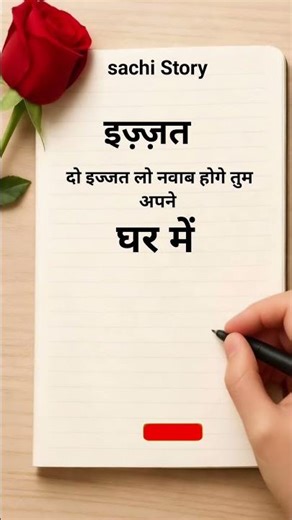 sachi Story
इज़्ज़त
दो इज्जत लो नवाब होगे तुम
अपने
घर में